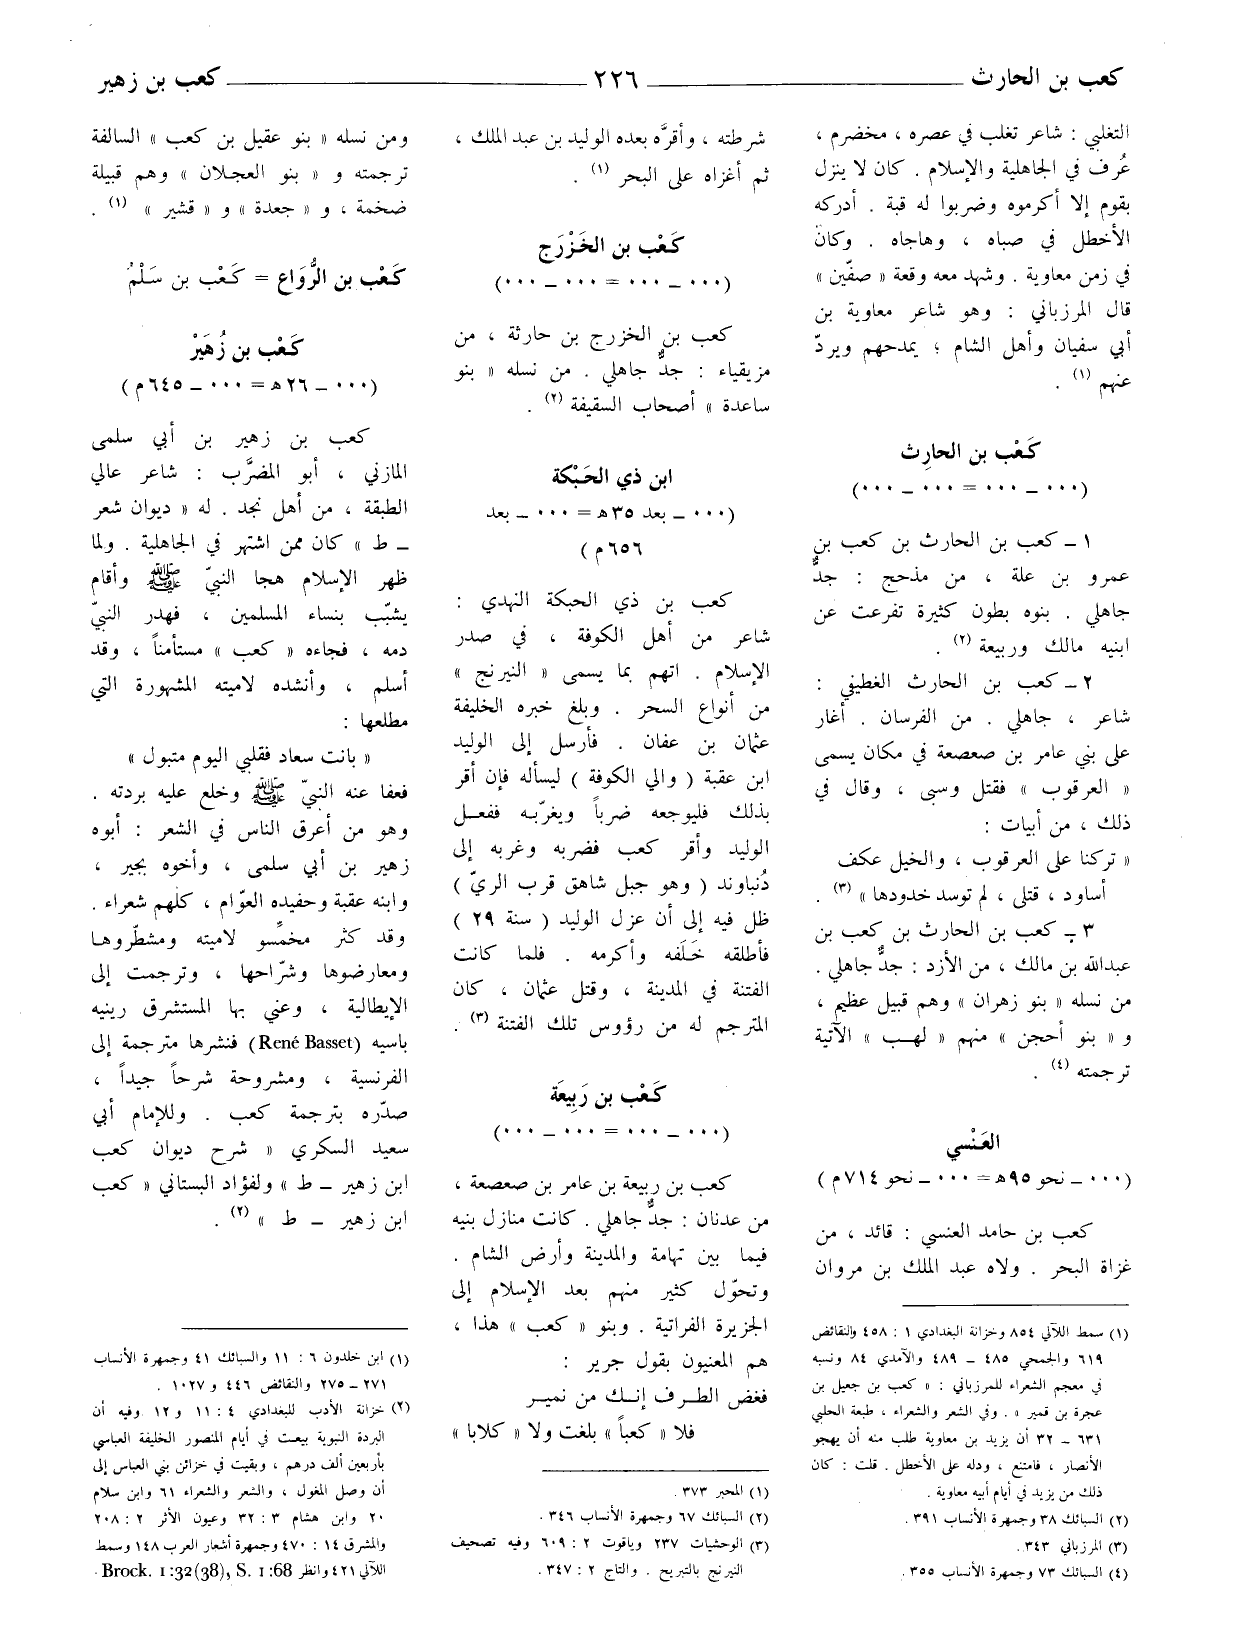 كعب بن الحارث ٢٢٦ كعب بن زهير
التغلبي : شاعر تغلب في عصره ، مخضرم ،
عُرف في الجاهلية والإسلام . كان لا ينزل
بقوم إلا أكرموه وضربوا له قبة . أدركه
الأخطل في صباه ، وهاجاه . وكان
في زمن معاوية . وشهد معه وقعة « صفّين »
قال المرزباني : وهو شاعر معاوية بن
أبي سفيان وأهل الشام ؛ يمدحهم ويردّ
عنهم (١) .
كَعْب بن الحارِث
(٠٠٠ ـ ٠٠٠ = ٠٠٠ ـ ٠٠٠)
١ ـ كعب بن الحارث بن كعب بن
عمرو بن علة ، من مذحج : جدٌّ
جاهلي . بنوه بطون كثيرة تفرعت عن
ابنيه مالك وربيعة (٢) .
٢ ـ كعب بن الحارث الغطيفي :
شاعر ، جاهلي . من الفرسان . أغار
على بني عامر بن صعصعة في مكان يسمى
« العرقوب » فقتل وسبى ، وقال في
ذلك ، من أبيات :
« تركنا على العرقوب ، والخيل عكف
أساود ، قتلى ، لم توسد خدودها » (٣) .
٣ ـ كعب بن الحارث بن كعب بن
عبدالله بن مالك ، من الأزد : جدٌّ جاهلي .
من نسله « بنو زهران » وهم قبيل عظيم ،
و « بنو أحجن » منهم « لهب » الآتية
ترجمته (٤) .
العَنْسي
(٠٠٠ ـ نحو ٩٥ه = ٠٠٠ ـ نحو ٧١٤م)
كعب بن حامد العنسي : قائد ، من
غزاة البحر . ولاه عبد الملك بن مروان
(١) سمط اللآلي ٨٥٤ وخزانة البغدادي ١ : ٤٥٨ والنقائض
٦١٩ والجمحي ٤٨٥ ـ ٤٨٩ والآمدي ٨٤ ونسبه
في معجم الشعراء للمرزباني : « كعب بن جعيل بن
عجرة بن قمير » . وفي الشعر والشعراء ، طبعة الحلبي
٦٣١ ـ ٣٢ أن يزيد بن معاوية طلب منه أن يهجو
الأنصار ، فامتنع ، ودله على الأخطل . قلت : كان
ذلك من يزيد في أيام أبيه معاوية .
(٢) السبائك ٣٨ وجمهرة الأنساب ٣٩١ .
(٣) المرزباني ٣٤٣ .
(٤) السبائك ٧٣ وجمهرة الأنساب ٣٥٥ .
شرطته ، وأقرَّه بعده الوليد بن عبد الملك ،
ثم أغزاه على البحر (١) .
كَعْب بن الخَزْرَج
(٠٠٠ ـ ٠٠٠ = ٠٠٠ ـ ٠٠٠)
كعب بن الخزرج بن حارثة ، من
مزيقياء : جدٌّ جاهلي . من نسله « بنو
ساعدة » أصحاب السقيفة (٢) .
ابن ذي الحَبْكة
(٠٠٠ ـ بعد ٣٥ه = ٠٠٠ ـ بعد
٦٥٦م)
كعب بن ذي الحبكة النهدي :
شاعر من أهل الكوفة ، في صدر
الإسلام . اتهم بما يسمى « النيرنج »
من أنواع السحر . وبلغ خبره الخليفة
عثمان بن عفان . فأرسل إلى الوليد
ابن عقبة ( والي الكوفة ) ليسأله فإن أقر
بذلك فليوجعه ضرباً ويغرّبه ففعل
الوليد وأقر كعب فضربه وغربه إلى
دُنباوند ( وهو جبل شاهق قرب الريّ )
ظل فيه إلى أن عزل الوليد ( سنة ٢٩ )
فأطلقه خَلَفه وأكرمه . فلما كانت
الفتنة في المدينة ، وقتل عثمان ، كان
المترجم له من رؤوس تلك الفتنة (٣) .
كَعْب بن رَبِيعَة
(٠٠٠ ـ ٠٠٠ = ٠٠٠ ـ ٠٠٠)
كعب بن ربيعة بن عامر بن صعصعة ،
من عدنان : جدٌّ جاهلي . كانت منازل بنيه
فيما بين تهامة والمدينة وأرض الشام .
وتحوّل كثير منهم بعد الإسلام إلى
الجزيرة الفراتية . وبنو « كعب » هذا ،
هم المعنيون بقول جرير :
فغض الطرف إنك من نمير
فلا « كعباً » بلغت ولا « كلابا »
(١) المحبر ٣٧٣ .
(٢) السبائك ٦٧ وجمهرة الأنساب ٣٤٦ .
(٣) الوحشيات ٢٣٧ وياقوت ٢ : ٦٠٩ وفيه تصحيف
النيرنج بالتبريج . والتاج ٢ : ٣٤٧ .
ومن نسله « بنو عقيل بن كعب » السالفة
ترجمته و « بنو العجلان » وهم قبيلة
ضخمة ، و « جعدة » و « قشير » (١) .
كَعْب بن الرُّوَاع = كَعْب بن سَلْمُ
كَعْب بن زُهَيْر
(٠٠٠ ـ ٢٦ه = ٠٠٠ ـ ٦٤٥م)
كعب بن زهير بن أبي سلمى
المازني ، أبو المضرَّب : شاعر عالي
الطبقة ، من أهل نجد . له « ديوان شعر
ـ ط » كان ممن اشتهر في الجاهلية . ولما
ظهر الإسلام هجا النبيّ ﷺ وأقام
يشبّب بنساء المسلمين ، فهدر النبيّ
دمه ، فجاءه « كعب » مستأمناً ، وقد
أسلم ، وأنشده لاميته المشهورة التي
مطلعها :
« بانت سعاد فقلبي اليوم متبول »
فعفا عنه النبيّ ﷺ وخلع عليه بردته .
وهو من أعرق الناس في الشعر : أبوه
زهير بن أبي سلمى ، وأخوه بجير ،
وابنه عقبة وحفيده العوّام ، كلهم شعراء .
وقد كثر مخمِّسو لاميته ومشطّروها
ومعارضوها وشرّاحها ، وترجمت إلى
الإيطالية ، وعني بها المستشرق رينيه
باسيه (René Basset) فنشرها مترجمة إلى
الفرنسية ، ومشروحة شرحاً جيداً ،
صدّره بترجمة كعب . وللإمام أبي
سعيد السكري « شرح ديوان كعب
ابن زهير ـ ط » ولفؤاد البستاني « كعب
ابن زهير ـ ط » (٢) .
(١) ابن خلدون ٦ : ١١ والسبائك ٤١ وجمهرة الأنساب
٢٧١ ـ ٢٧٥ والنقائض ٤٤٦ و ١٠٢٧ .
(٢) خزانة الأدب للبغدادي ٤ : ١١ و ١٢ وفيه أن
البردة النبوية بيعت في أيام المنصور الخليفة العباسي
بأربعين ألف درهم ، وبقيت في خزائن بني العباس إلى
أن وصل المغول ، والشعر والشعراء ٦١ وابن سلام
٢٠ وابن هشام ٣ : ٣٢ وعيون الأثر ٢ : ٢٠٨
والمشرق ١٤ : ٤٧٠ وجمهرة أشعار العرب ١٤٨ وسمط
اللآلي ٤٢١ وانظر Brock. I:32(38), S. I:68 .